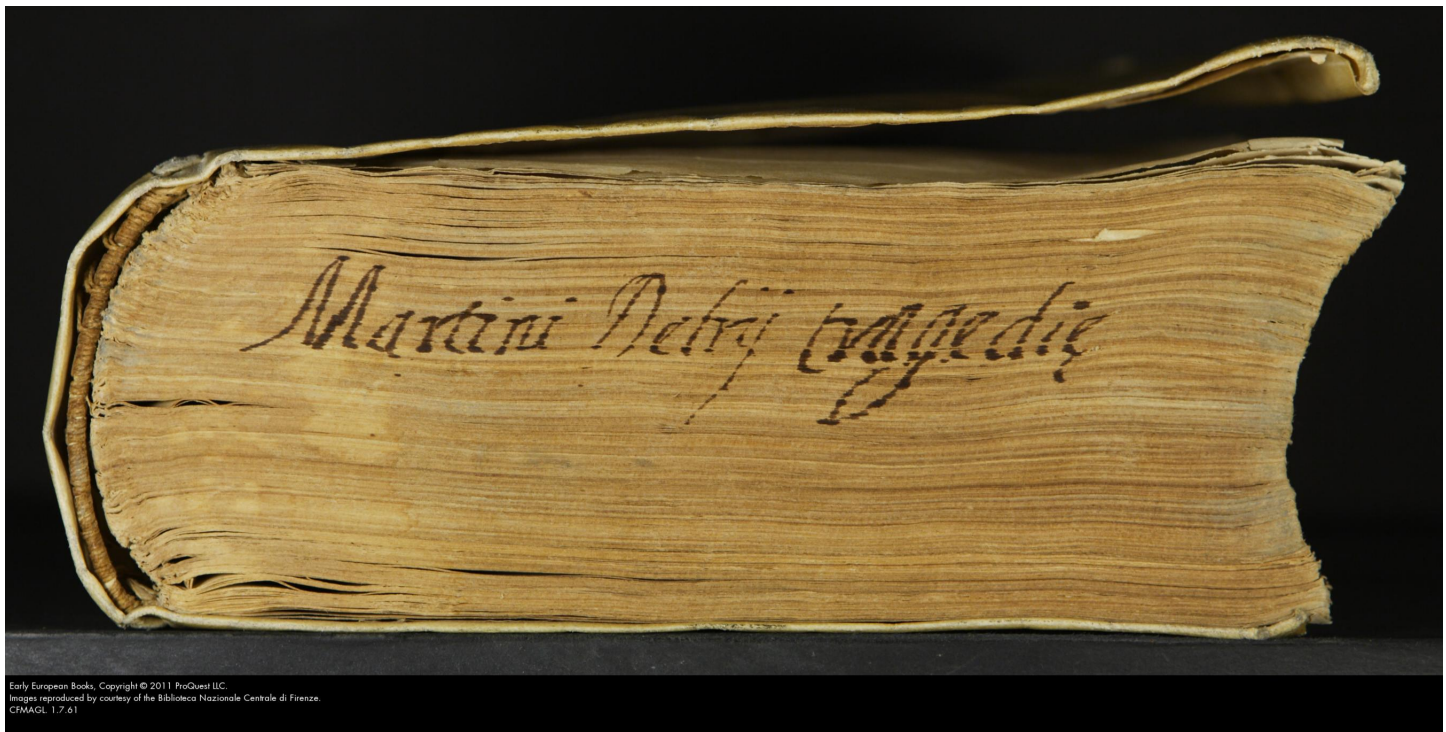 Martini Delrij tragedię
Early European Books, Copyright © 2011 ProQuest LLC.
Images reproduced by courtesy of the Biblioteca Nazionale Centrale di Firenze.
CFMAGL. 1.7.61